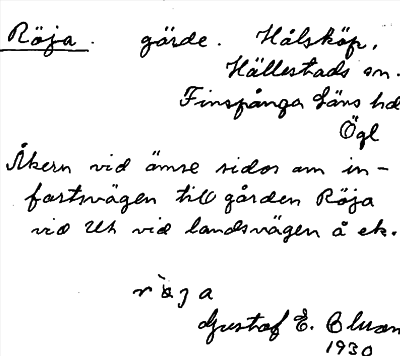 Röja. gärde. Hålsköp,
Hällestads sn.
Finspånga läns hd
Ögl
Åkern vid ömse sidor om in-
fartsvägen till gården Röja
vid vid landsvägen å ek.
Gustaf E.
1930